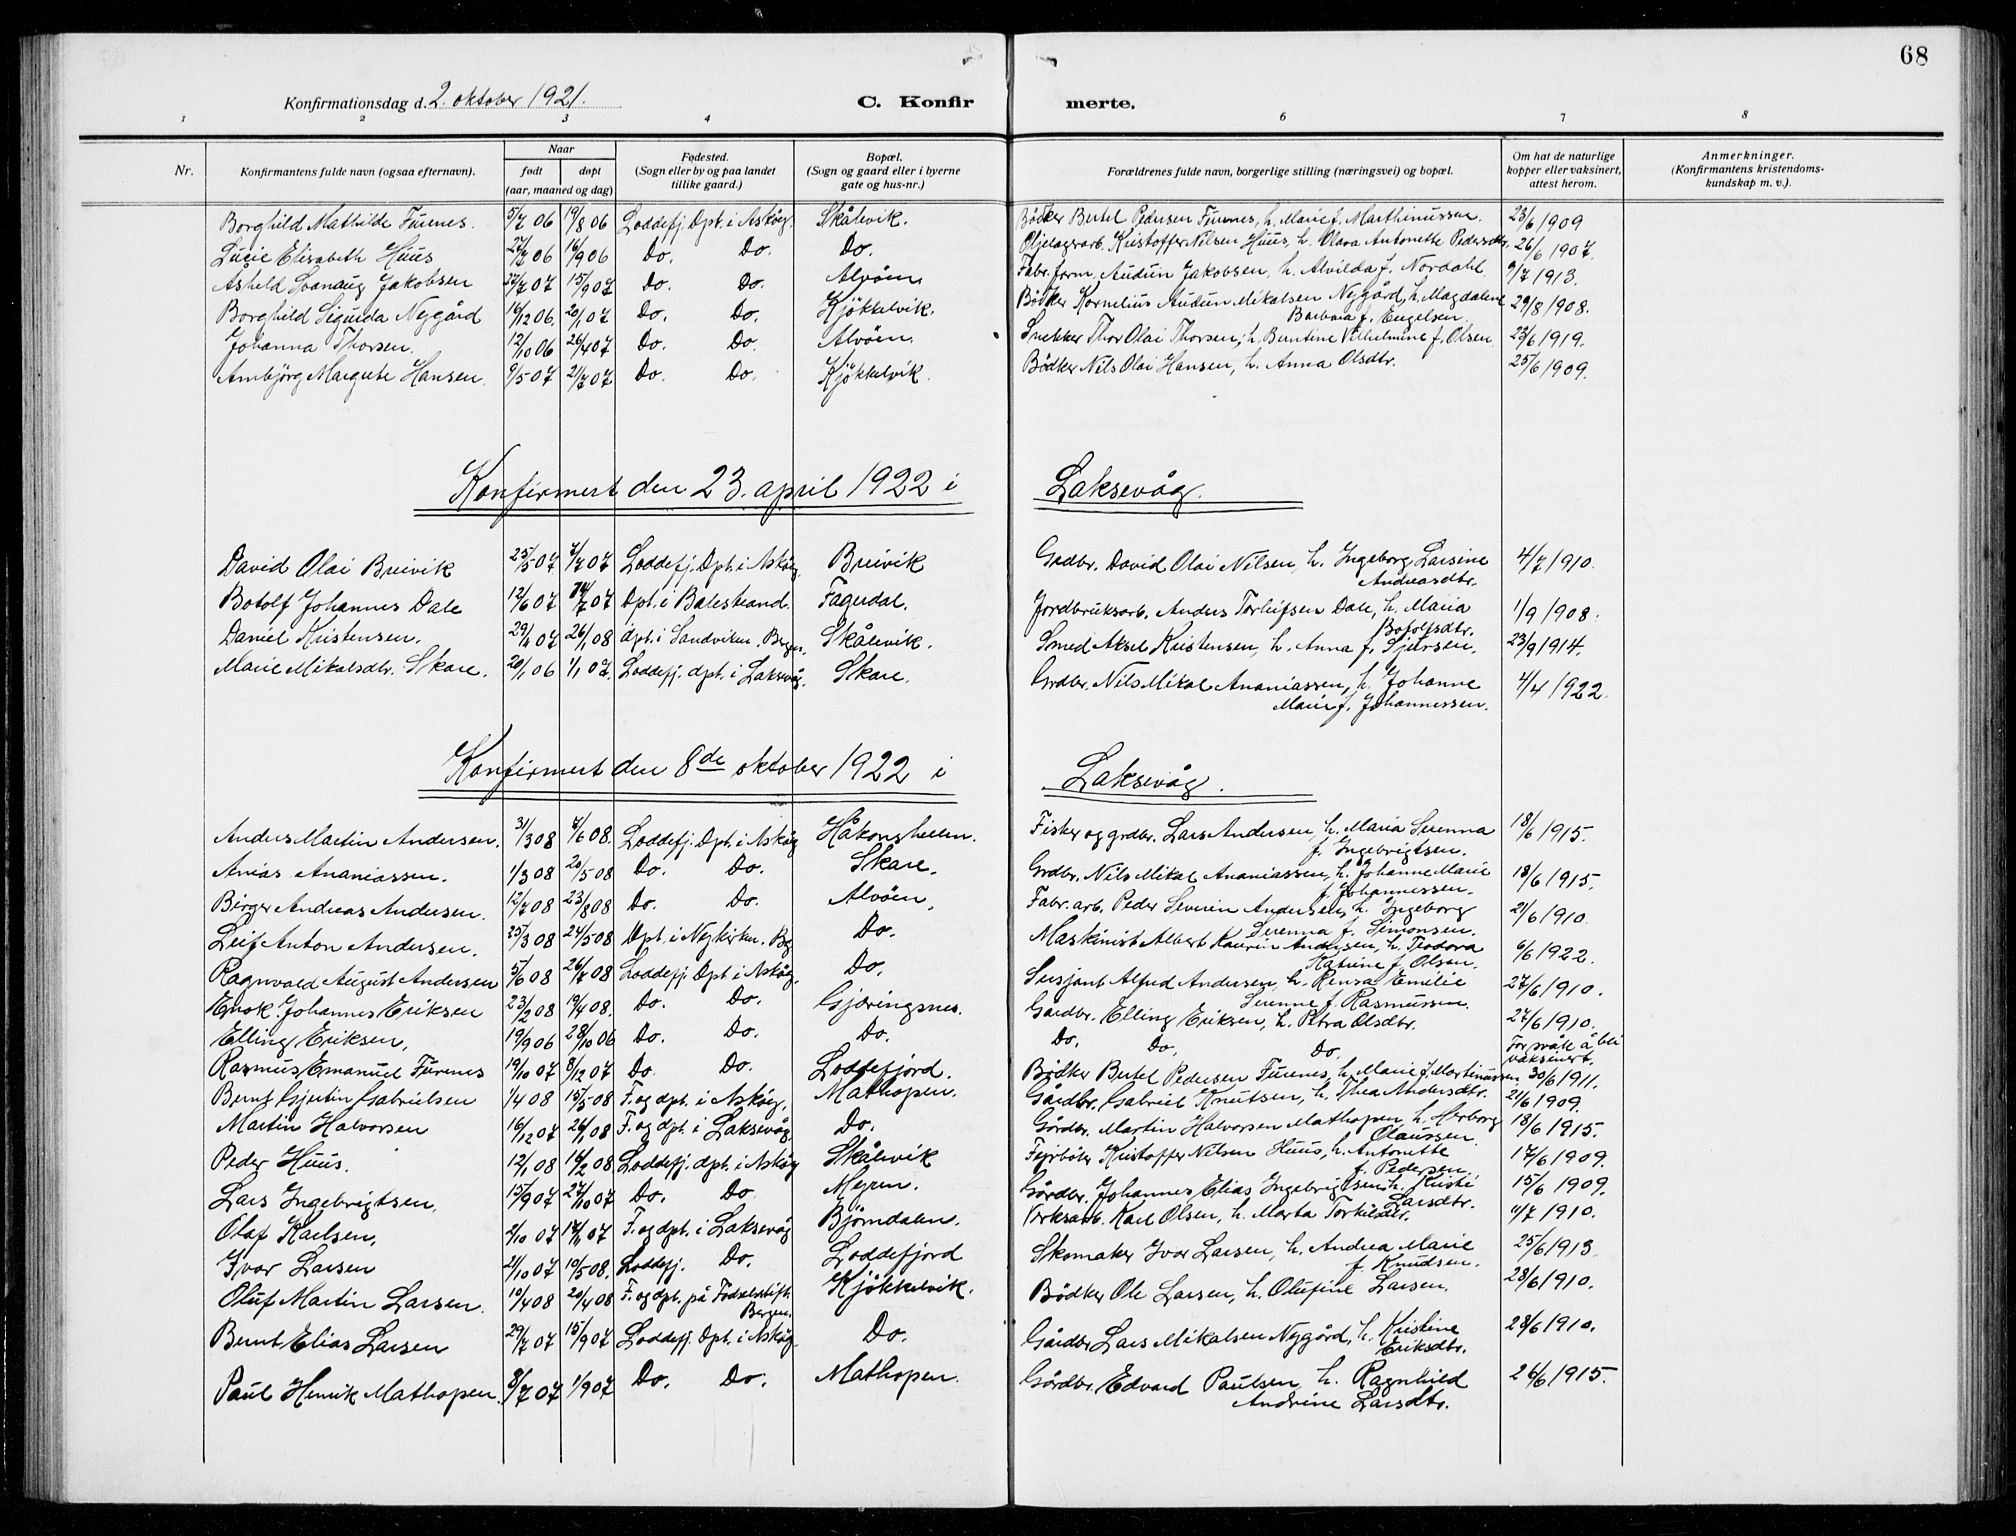 68
Konfirmationsdag d. 2. oktober 1921. C. Konfirmerte.
1 2 3 4 6 7 8
Nr. Konfirmantens fulde navn (ogsaa efternavn). Naar født døpt (aar, maaned og dag) Fødested. (Sogn eller by og paa landet tillike gaard.) Bopæl. (Sogn og gaard eller i byerne gate og hus-nr.) Forældrenes fulde navn, borgerlige stilling (næringsvei) og bopæl. Om hat de naturlige kopper eller vaksinert, attest herom. Anmerkninger. (Konfirmantens kristendomskundskap m. v.).
Borghild Mathilde Furenes. 5/7 06 19/8 06 Loddefj. Dpt. i Askøy. Skålevik. Bødker Bertel Pedersen Furenes, h. Marie f. Marthinussen. 23/6 1909
Lucie Elisabeth Huus 27/7 06 16/9 06 Do. Do. Do. Oljelagerarb. Kristoffer Nilsen Huus, h. Olava Antonette Pedersdtr. 26/6 1907.
Åshild Svanaug Jakobsen 27/7 07 15/9 07 Do. Do. Alvøen Fabr. form. Audun Jakobsen, h. Alvilda f. Nordahl. 9/7 1913.
Borghild Sigurda Nygård 16/12 06. 20/1 07 Do. Do. Kjøkkelvik. Bødker Kornelius Audun Mikalsen Nygård, h. Magdalene Barbara f. Engelsen. 29/8 1908.
Johanna Thorsen. 12/10 06 26/4 07 Do. Do. Alvøen Snekker Thor Olai Thorsen, h. Berntine Vilhelmine f. Olsen. 23/6 1919.
Arnbjörg Margrete Hansen. 9/5 07 21/7 07 Do. Do. Kjøkkelvik. Bødker Nils Olai Hansen, h. Anna Olsdtr. 25/6 1909.
Konfirmert den 23. april 1922 i Laksevåg.
David Olai Breivik 25/5 07 7/7 07 Loddefj. Dpt. i Askøy. Breivik Grdbr. David Olai Nilsen, h. Ingeborg Larsine Andreasdtr. 4/7 1910.
Botolf Johannes Dale 12/6 07 14/7 07 Dpt. i Balestrand. Fagerdal. Jordbruksarb. Anders Torleifsen Dale, h. Maria Botolfsdtr. 1/9 1908.
Daniel Kristensen. 29/1 07 26/1 08 dpt. i Sandviken. Bergen. Skålevik. Smed Aksel Kristensen, h. Anna f. Sjursen. 23/9 1914.
Marie Mikalsdtr. Skare. 20/1 06 1/1 07. Loddefj. dpt. i Laksevåg. Skare. Grdbr. Nils Mikal Ananiassen, h. Johanne Marie f. Johannessen. 4/4 1922.
Konfirmert den 8de oktober 1922 i Laksevåg.
Anders Martin Andersen. 31/3 08 7/6 08. Loddefj. Dpt. i Askøy Håkonshellen. Fisker og grdbr. Lars Andersen, h. Maria Serenna f. Ingebrigtsen. 18/6 1915.
Anias Ananiassen. 1/3 08 20/5 08 Do. Do. Skare. Grdbr. Nils Mikal Ananiassen, h. Johanne Marie f. Johannessen. 18/6 1915.
Birger Andreas Andersen. 12/7 08 23/8 08 Do. Do. Alvøen, Fabr. arb. Peder Severin Andersen, h. Ingeborg Serenna f. Simonsen. 21/6 1910.
Leif Anton Andersen. 25/3 08 24/5 08 Dpt. i Nykirken. Bg Do. Maskinist Albert Kaurin Andersen, h. Teodora Katrine f. Olsen. 6/6 1922.
Ragnvald August Andersen 5/6 08 26/7 08 Loddefj. Dpt. i Askøy. Do. Sersjant Alfred Andersen, h. Rensa Emilie Serenne f. Rasmussen. 27/6 1910.
Enok Johannes Eriksen 23/2 08 19/4 08. Do. Do. Gjæringsnes. Gårdbr. Elling Eriksen, h. Petra Olsdtr. 27/6 1910.
Elling Eriksen. 19/9 06 28/10 06 Do. Do. Do. Do. Do. Do. For svak å bli vaksinert.
Rasmus Emanuel Furenes 19/10 07 8/12 07 Do. Do. Loddefjord. Bødker Bertel Pedersen Furenes, h. Marie f. Martinussen 30/6 1911.
Bernt Gjertin Gabrielsen 1/4 08 15/5 08 F. og dpt. i Askøy. Mathopen. Gårdbr. Gabriel Knutsen, h. Thea Andersdtr. 21/6 1909.
Martin Halvorsen 16/12 07 26/1 08 F. og dpt. i Laksevåg. Do. Gårdbr. Martin Halvorsen Mathopen, h. Herborg Olaussen. 18/6 1915.
Peder Huus. 12/1 08 14/2 08 Loddefj. dpt. i Askøy Skålevik Fyrbøter Kristoffer Nilsen Huus, h. Antonette f. Pedersen. 17/6 1909.
Lars Ingebrigtsen. 15/9 07 27/10 07 Do. Do. Myren. Gårdbr. Johannes Elias Ingebrigtsen h. Kristi Larsdtr. 15/6 1909.
Olaf Karlsen. 2/10 07 14/11 07 F. og dpt. i Laksevåg Björndalen. Verksarb. Karl Olsen, h. Marta Torkilsdtr. 11/7 1910.
Ivar Larsen 21/10 07 10/5 08. Loddefj. Do. Loddefjord Skomaker Ivar Larsen, h. Andrea Marie f. Knudsen. 25/6 1913.
Oluf Martin Larsen. 19/4 08 20/4 08 F. og dpt. på Fødselsstift. Bergen. Kjøkkelvik. Bødker Ole Larsen, h. Olufine Larsen. 28/6 1910.
Bernt Elias Larsen 29/7 07 15/9 07 Loddefj. Dpt. i Askøy Do. Gårdbr Lars Mikalsen Nygård, h. Kristine Eriksdtr. 28/6 1910.
Paul Henrik Mathopen. 8/7 07 1/9 07 Do. Do. Mathopen. Gårdbr. Edvard Paulsen h. Ragnhild Andrine Larsdtr. 26/6 1915.